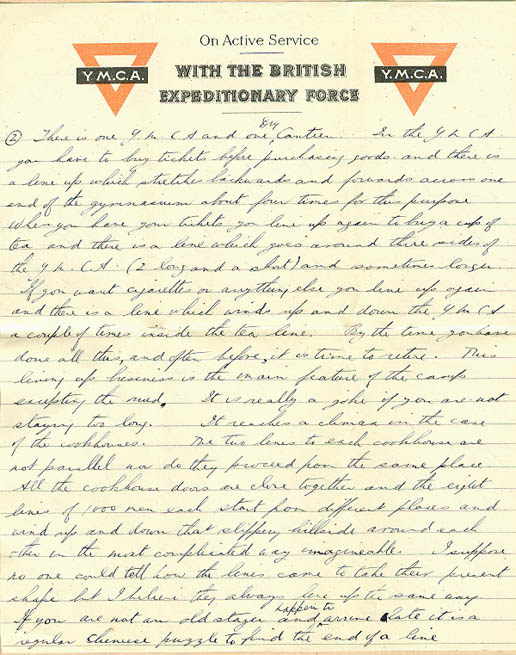 On Active Service
Y.M.C.A.
WITH THE BRITISH
Y.M.C.A.
EXPEDITIONARY FORCE
② There is one Y M C A and one Dry Canteen. In the Y M C A
you have to buy tickets before purchasing goods and there is
a line up which stretches backwards and forwards across one
end of the gymnasium about four times for this purpose
When you have your tickets you line up again to buy a cup of
tea and there is a line which goes around three sides of
the Y M. C. A. (2 long and a short) and sometimes longer
If you want cigarettes or anything else you line up again
and there is a line which winds up and down the Y M C A
a couple of times inside the tea line. By the time you have
done all this, and often before, it is time to retire. This
lining up business is the main feature of the camp
excepting the mud. It is really a joke if you are not
staying too long. It reaches a climax in the case
of the cookhouses. The two lines to each cookhouse are
not parallel nor do they proceed from the same place.
All the cookhouse doors are close together and the eight
lines of 1000 men each start from different places and
wind up and down that slippery hillside around each
other in the most complicated way imagineable. I suppose
no one could tell how the lines came to take their present
shape but I believe they always line up the same way.
If you are not an old stager and happen to arrive late it is a
regular Chinese puzzle to find the end of a line